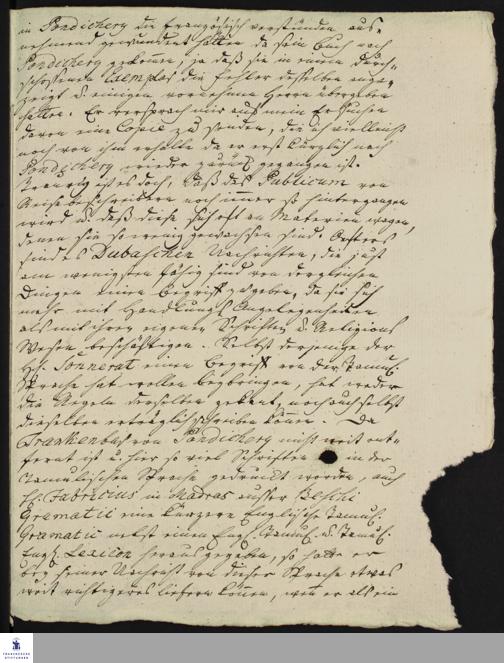 in Pondichery die französisch verstünden aus-
nehmend gewundert hätten da sein Buch nach
Pondichery gekomen, ja daß sie in einem durch-
schossenen Exemplar die Fehler desselben ange-
zeigt u. einigen vornehmen Herrn übergeben
hätten. Er versprach mir auf mein Ersuchen
davon eine Copie zu senden, die ich vielleicht
noch von ihm erhalte da er erst kürzlich nach
Pondichery wieder zurück gegangen ist.
Traurig ist es doch, daß das Publicum von
Reisebeschreibern noch immer so hintergangen
wird u. daß diese sich oft an Materien wagen,
denen sie so wenig gewachsen sind. Oefters
sind es Dubaschen Nachrichten, die just
am wenigsten fähig sind von dergleichen
Dingen einen Begriff zu geben, da sie sich
mehr mit Handlungs Angelegenheiten
als mit ihren eigenen Schriften u. Religions
Wesen beschäftigen. Selbst derjenige der
H. Sonnerat einen Begriff von der Tamul.
Sprache hat wollen beybringen, hat weder
die Regeln derselben gekant, noch auch selbst
dieselben erträglich schreiben können. Da
Trankenbar von Pondichery nicht weit ent-
fernt ist u. hier so viel Schriften in der
Tamulischen Sprache gedruckt worden, auch
H. Fabricius in Madras ausser Beschii
Gramatic eine kürzere Englische Tamul.
Gramatic nebst einen Engl. Tamul. u. Tamul.
Engl. Lexicon heraus gegeben, so hätte er
bey seiner Nachricht von dieser Sprache etwas
weit richtigeres liefern können, wenn er als ein
FRANCKESCHE
STIFTUNGEN